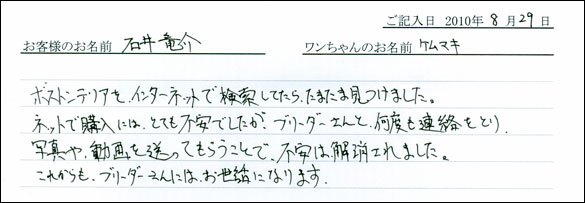 ご記入日 2010年 8月 29日
お客様のお名前 石井 竜介 ワンちゃんのお名前 ケムマキ
ボストンテリアを、インターネットで検索してたら、たまたま見つけました。
ネットで購入には、とても不安でしたが、ブリーダーさんと、何度も連絡をとり、
写真や、動画を送ってもらうことで、不安は、解消されました。
これからも、ブリーダーさんには、お世話になります。